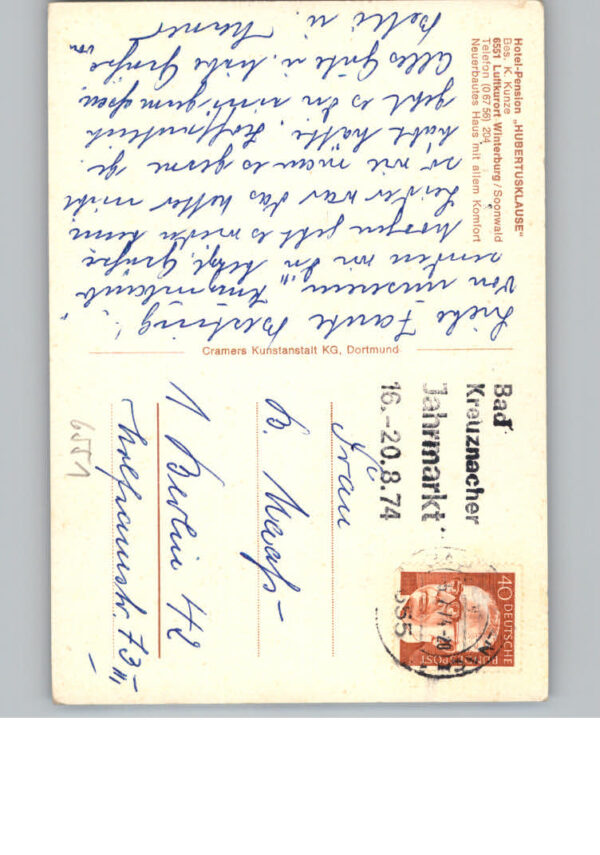 Hotel-Pension „HUBERTUSKLAUSE"
Bes. K. Kunze
6551 Luftkurort Winterburg / Soonwald
Telefon (0 67 56) 204
Neuerbautes Haus mit allem Komfort
Liebe Tante
Von unserem
senden wir Dir liebe Grüße
Morgen geht es wieder heim
Leider war das Wetter nicht
so wie man es gerne ge-
habt hätte. Hoffentlich
geht es Dir einigermaßen
Alles Gute u. liebe Grüße
von
u.
Cramers Kunstanstalt KG, Dortmund
Bad
Kreuznacher
Jahrmarkt
16.-20.8.74
40
DEUTSCHE
BUNDESPOST
Frau
B. Maaß
1 Berlin 42
73
6551